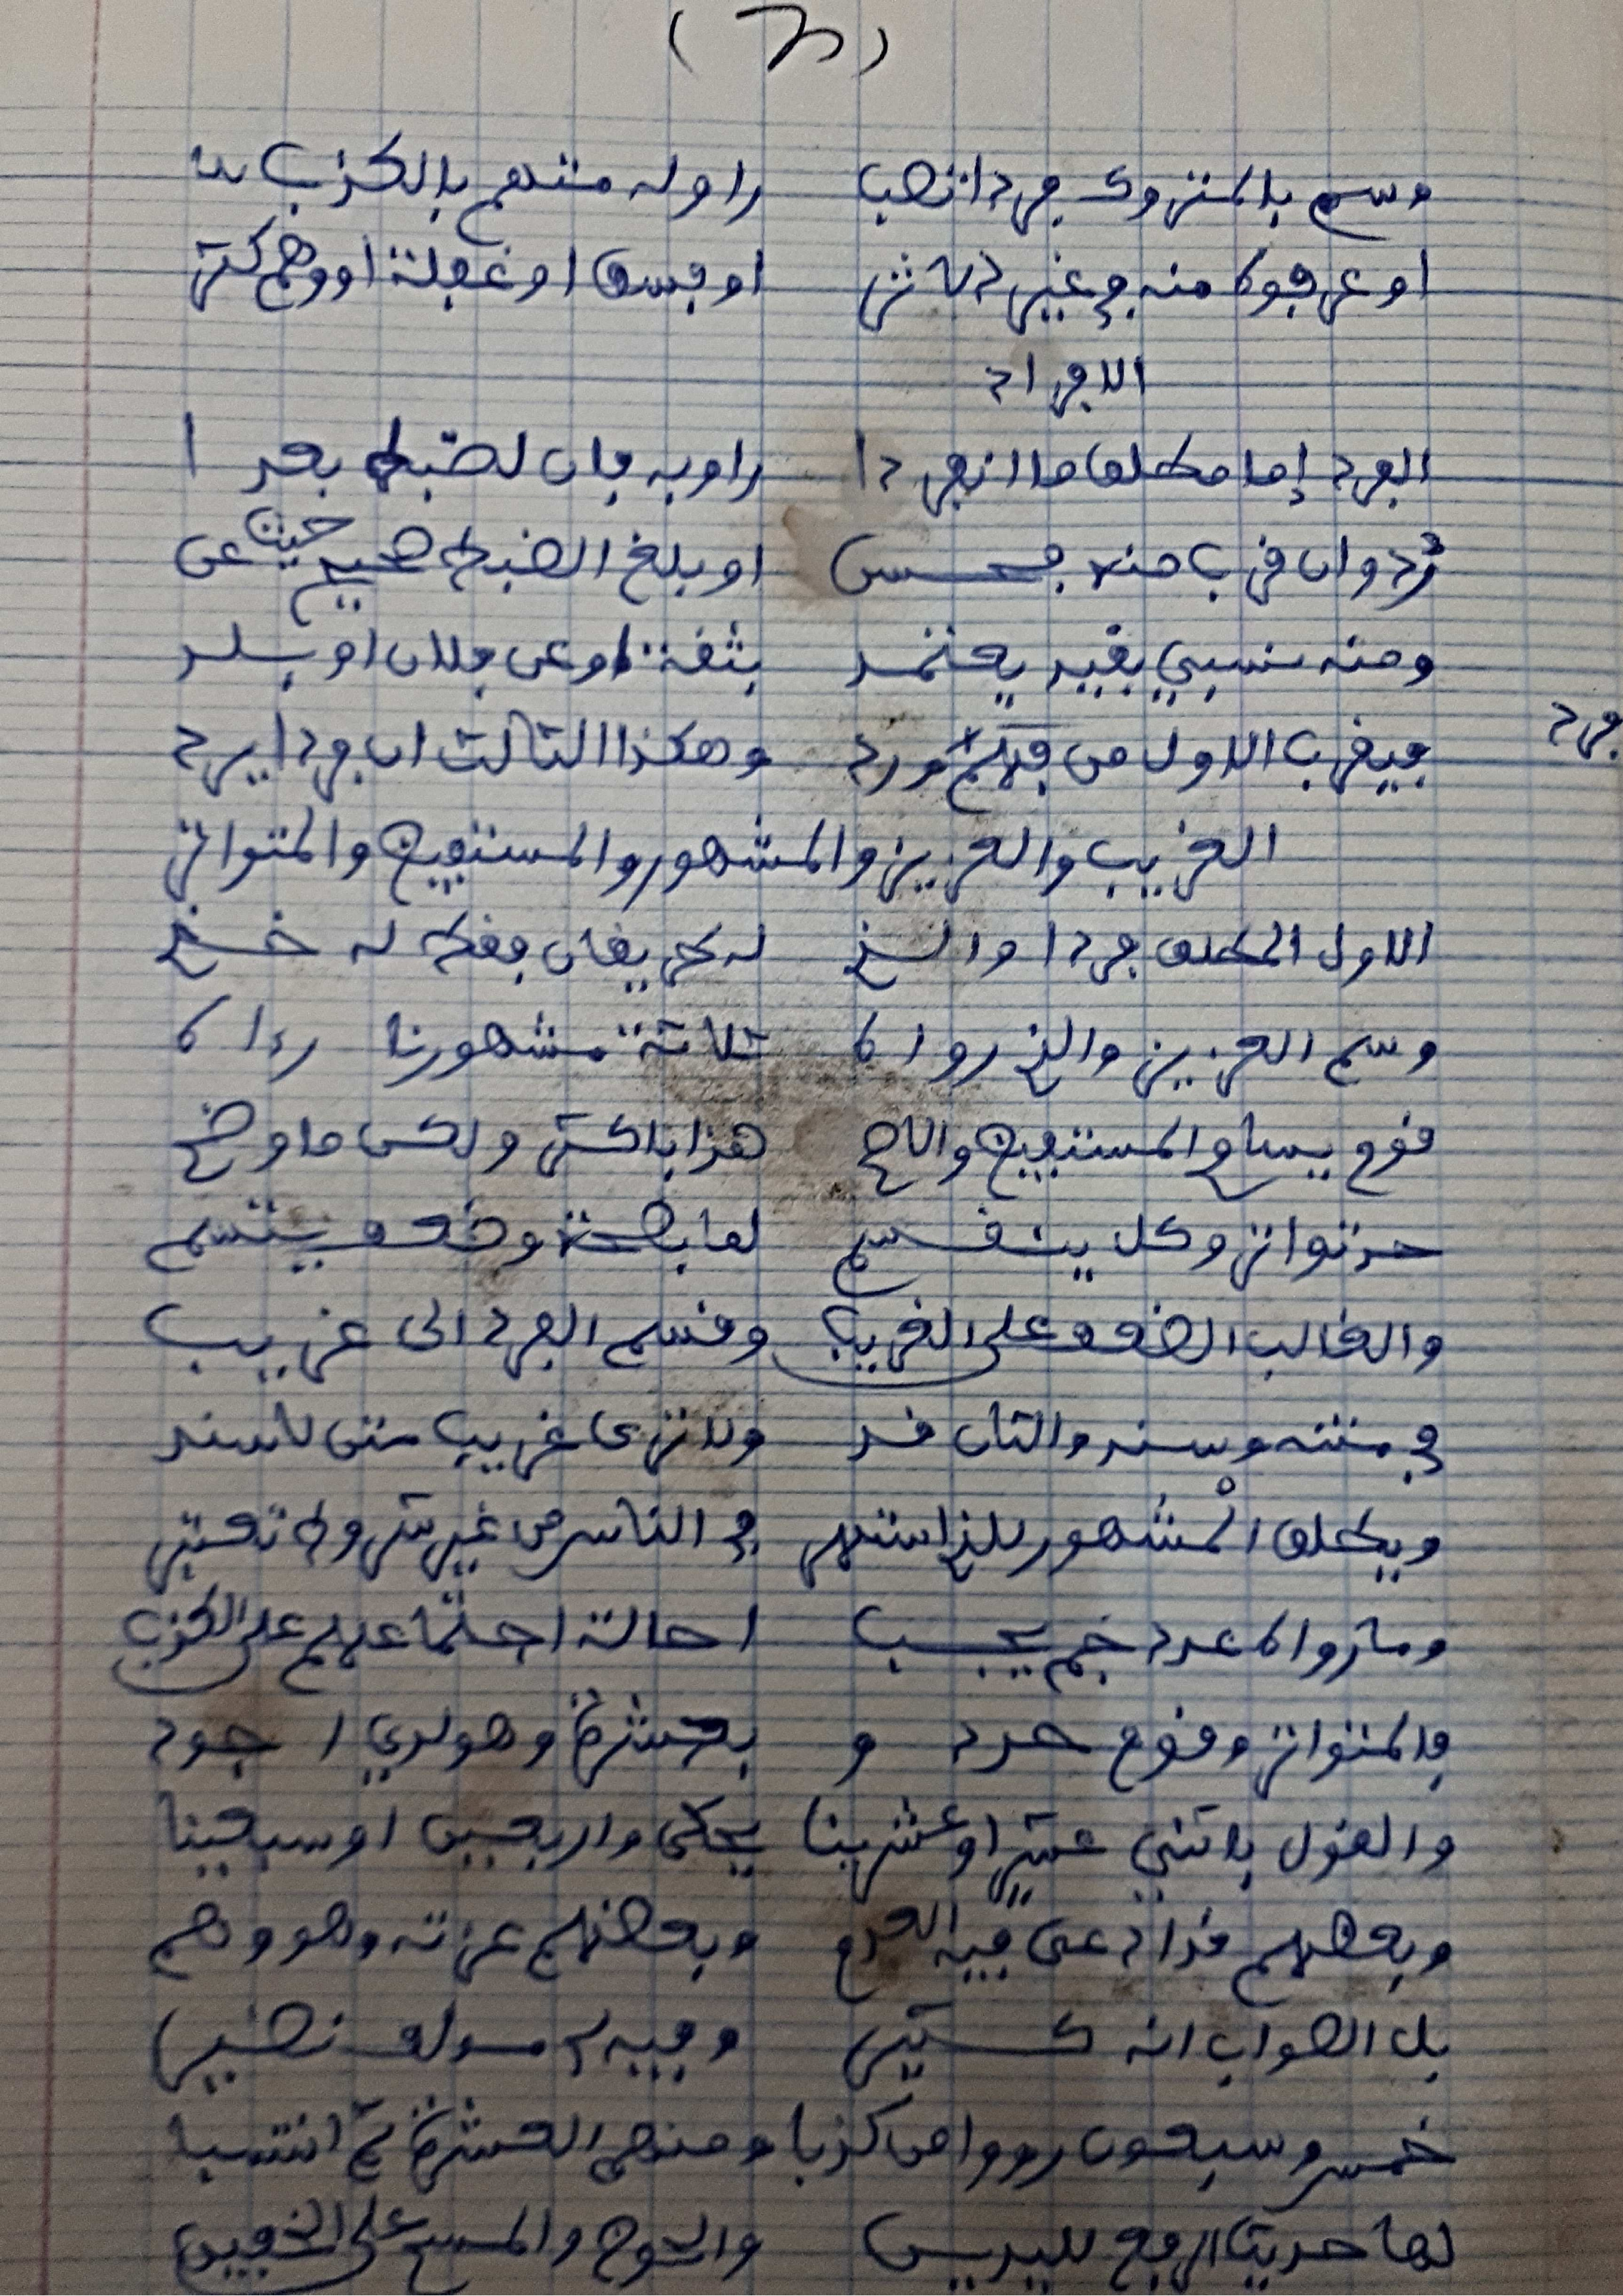 (٣)
وسم بالمتروك فردا تصب راو له متهم بالكذب
او عرفوه منه في غير الاثر او فسق او غفلة او وهم كثر
الافراد
الفرد إما مطلق ما انفردا راو به فان لضبط بعدا
رد وان قرب منه فحسن او بلغ الضبط فصحح حيث عن
ومنه نسبي بقيد يعتمد بثقة او عن فلان او بلد
فيقرب الاول من فرد ورد وهكذا الثالث ان فردا يرد
فرد
الغريب والعزيز والمشهور والمستفيض والمتواتر
الاول المطلق فردا والذي له طريقان فقط له خذ
وسم العزيز والذي رواه ثلاثة مشهورنا رءاه
قوم يساوي المستفيض والاصح هذا باكثر ولكن ما وضح
حد تواتر وكل ينقسم لما بصحة وضعف يتسم
والغالب الضعف على الغريب وقسم الفرد الى غريب
في متنه وسند والثان قد ولا ترى غريب متن لا سند
ويطلق المشهور للذ اشتهر في الناس من غير شروط تعتبر
وما رواه عدد جم يجب احالة اجتماعهم على الكذب
فالمتواتر وقوم حددوا بعشرة وهو لدي اجود
والقول باثني عشر او عشرينا يحكى واربعين او سبعينا
وبعضهم قد ادعى فيه العدم وبعضهم عزته وهو وهم
بل الصواب انه كثير وفيه لي مولف نضير
خمس وسبعون رووا من كذبا ومنهم العشرة ثم انتسبا
لها حديث الرفع لليدين والحوض والمسح على الخفين